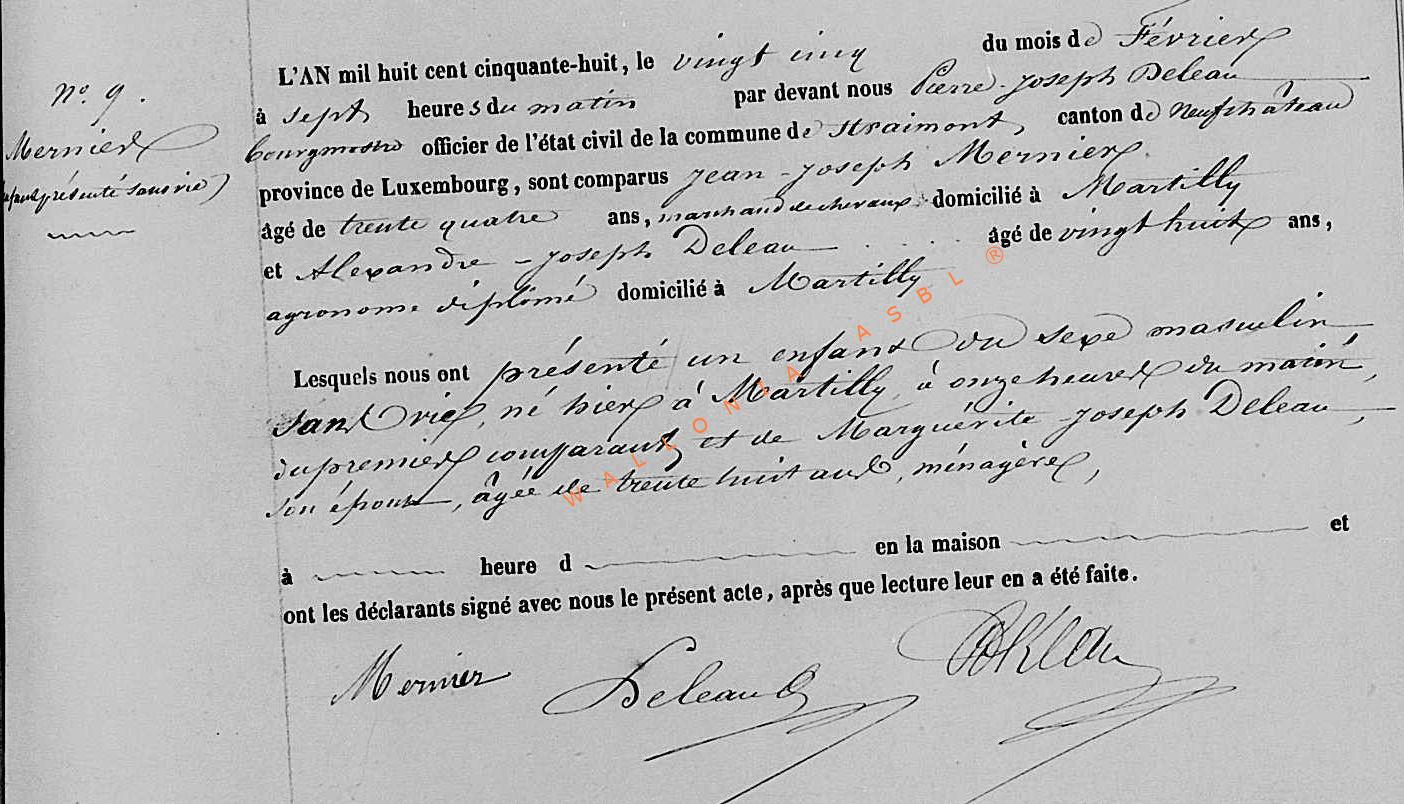 n.º 9.
Mernier
(enfant présenté sans vie)
L'AN mil huit cent cinquante-huit, le vingt cinq du mois de Février
à sept heures du matin par devant nous Pierre-Joseph Deleau
bourgmestre officier de l'état civil de la commune de Straimont, canton de Neufchâteau
province de Luxembourg, sont comparus Jean-Joseph Mernier
âgé de trente quatre ans, marchand de chevaux domicilié à Martilly
et Alexandre-Joseph Deleau âgé de vingt huit ans,
agronome diplômé domicilié à Martilly
Lesquels nous ont présenté un enfant du sexe masculin
sans vie, né hier à Martilly, à onze heures du matin,
du premier comparant et de Marguérite Joseph Deleau,
son épouse, âgée de trente huit ans, ménagère,
à heure d en la maison et
ont les déclarants signé avec nous le présent acte, après que lecture leur en a été faite.
Mernier Deleau
WALLONIA ASBL ®